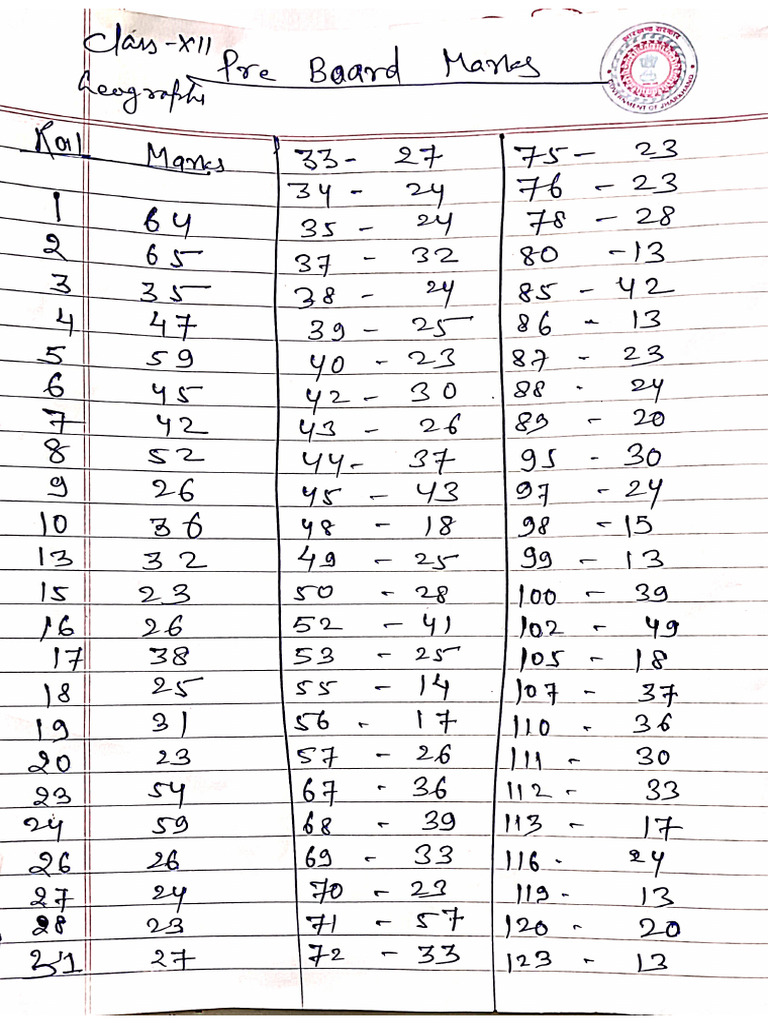 Class-XII
Geography
Pre Board Marks
झारखण्ड सरकार
GOVERNMENT OF JHARKHAND
Roll Marks
1 64
2 65
3 35
4 47
5 59
6 45
7 42
8 52
9 26
10 36
13 32
15 23
16 26
17 38
18 25
19 31
20 23
23 54
24 59
26 26
27 24
28 23
27
33- 27
34 - 24
35 - 24
37 - 32
38 - 24
39 - 25
40 - 23
42 - 30
43 - 26
44- 37
45 - 43
48 - 18
49 - 25
50 - 28
52 - 41
53 - 25
55 - 14
56 - 17
57 - 26
67 - 36
68 - 39
69 - 33
70 - 23
71 - 57
72 - 33
75 - 23
76 - 23
78 - 28
80 -13
85 - 42
86 - 13
87 - 23
88 - 24
89 - 20
95 - 30
97 - 24
98 -15
99 - 13
100 - 39
102 - 49
105 - 18
107 - 37
110 - 36
111 - 30
112 - 33
113 - 17
116 - 24
119 - 13
120 - 20
123 - 13